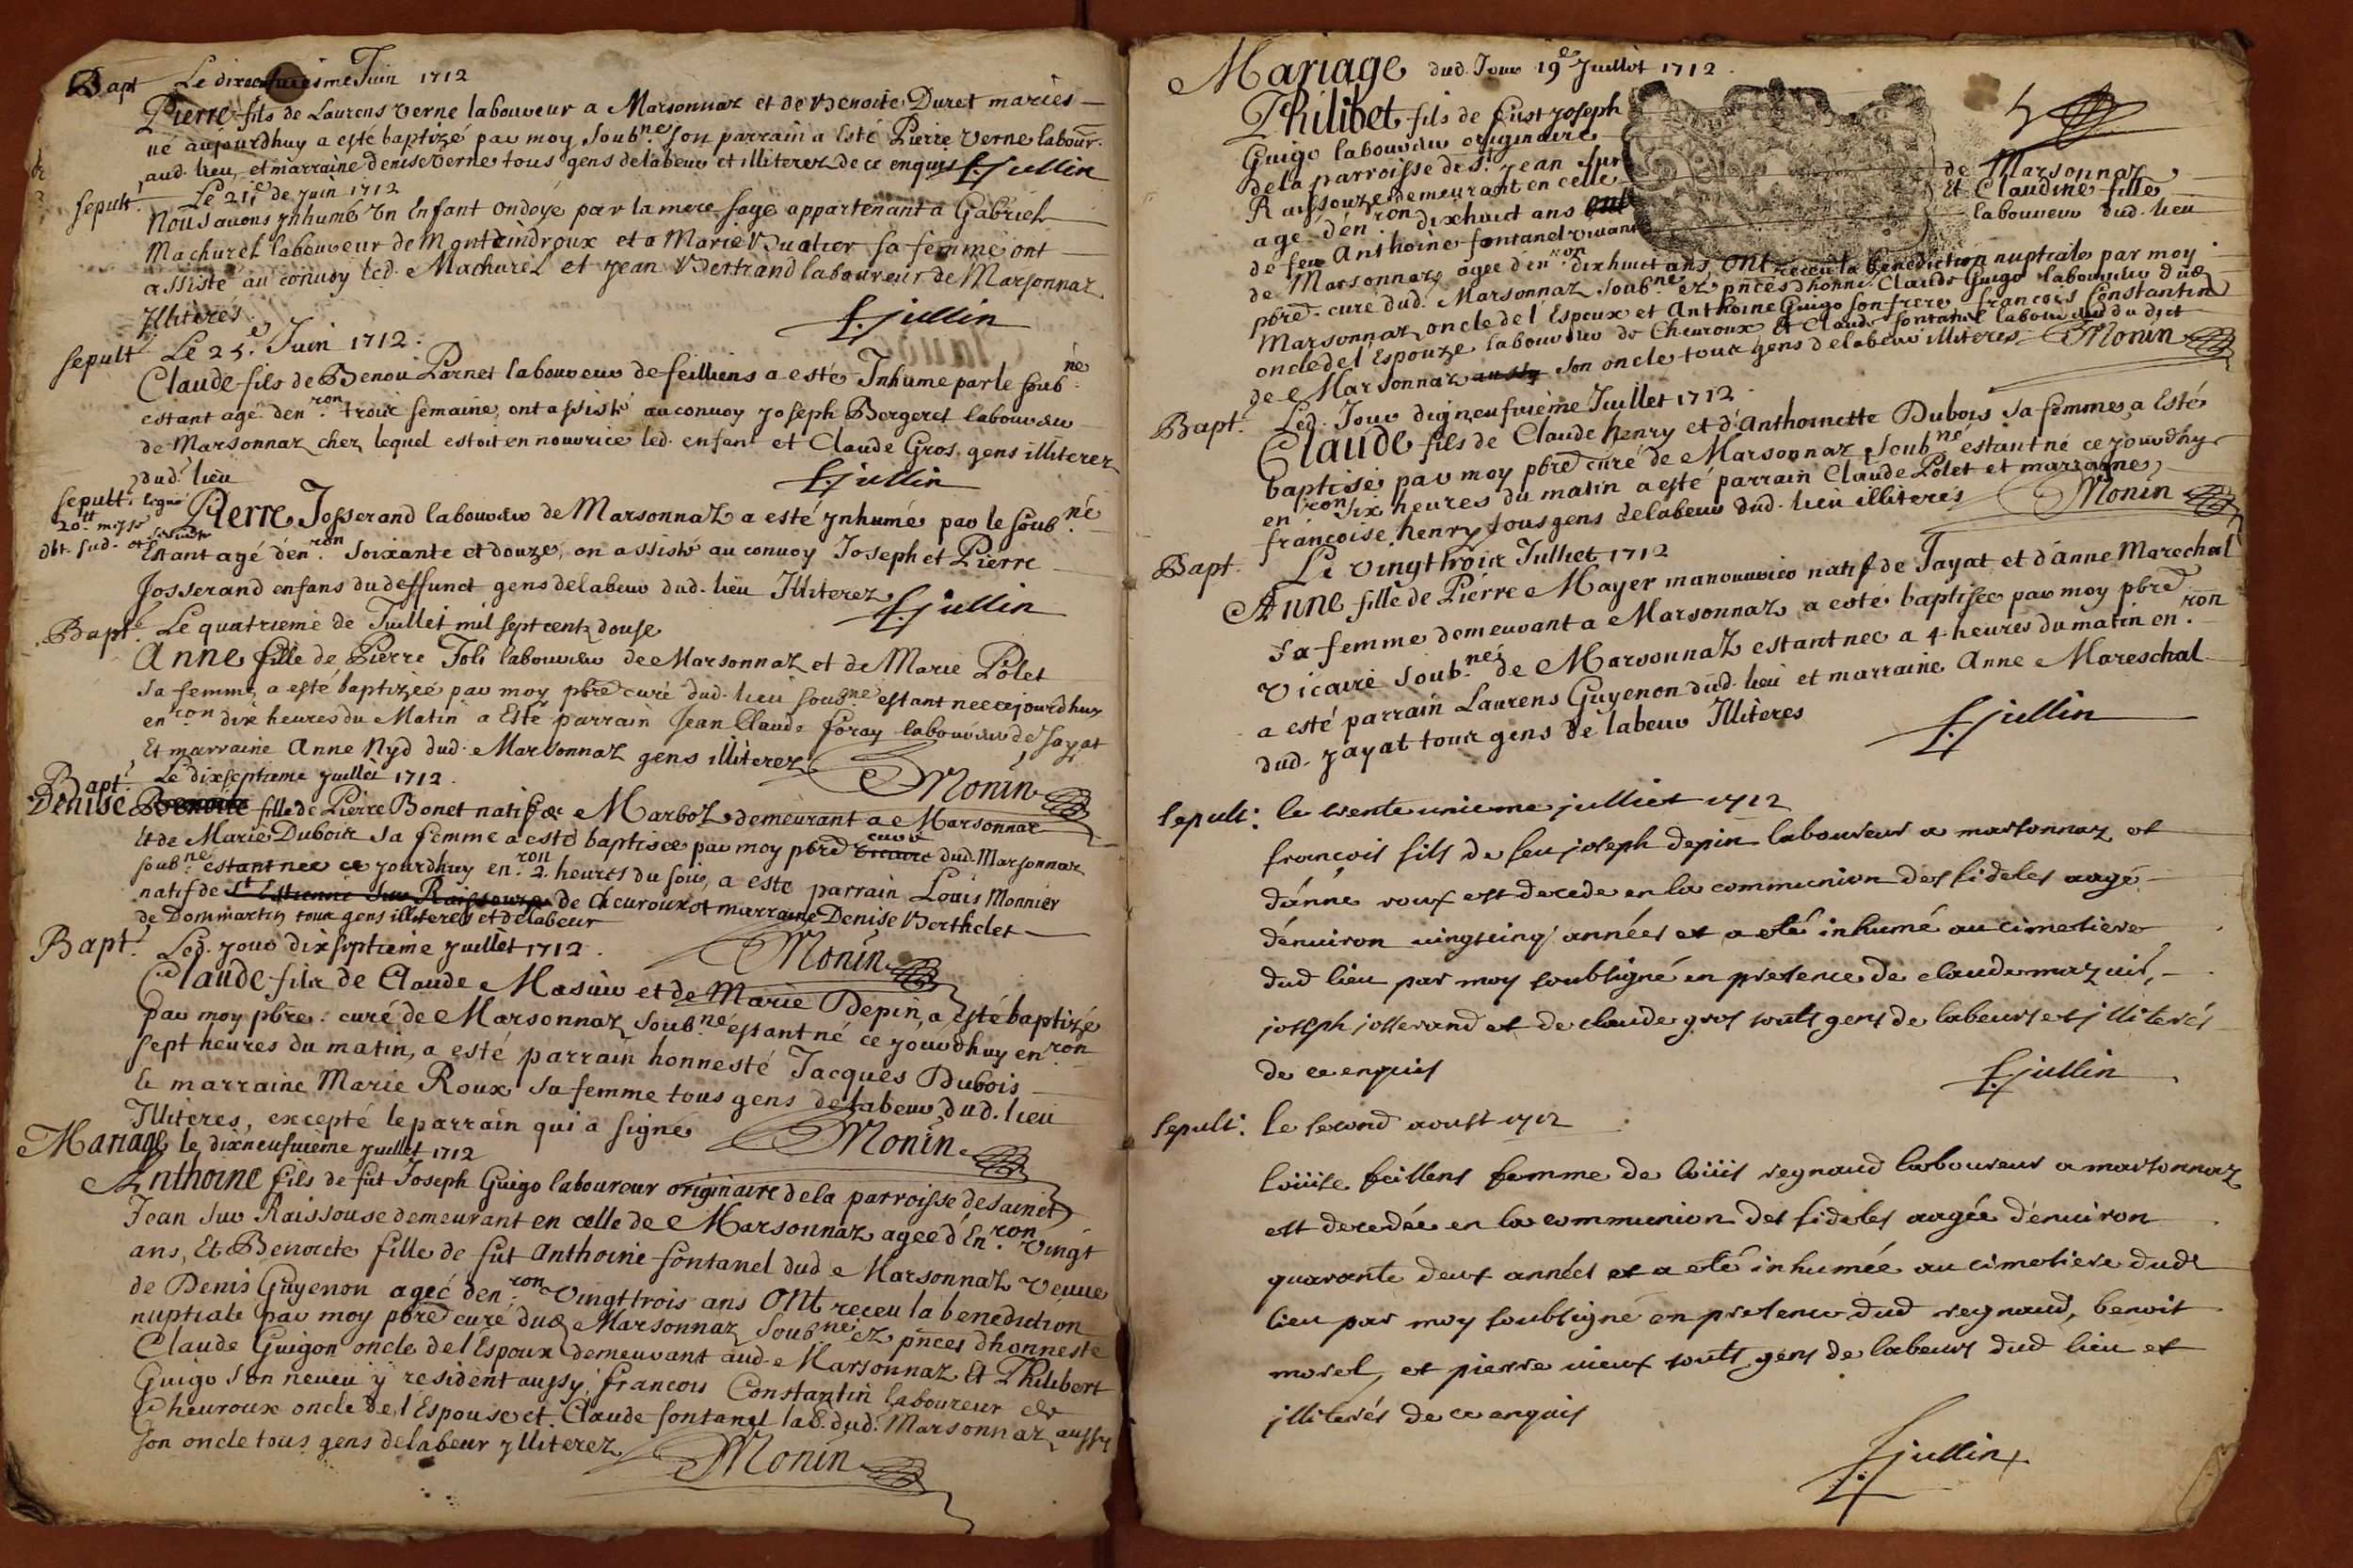 Bapt Le dixhuitiesme Juin 1712
Pierre fils de Laurens Verne laboureur a Marsonnaz et de Benoite Duret mariés
né aujourdhuy a esté baptizé par moy soub.né son parrain a Esté Pierre Verne labour.
aud. lieu, et marraine denise Verne tous gens de labeur et illiterez de ce enquis f. jullin
sepult. Le 21.e de juin 1712
Nous avons ynhumé Un Enfant ondoyé par la mere sage appartenant a Gabriel
Machurel laboureur de Mont et a Marie sa femme ont
assisté au convoy led. Machurel et jean Bertrand laboureur de Marsonnaz
Illiterés. f. jullin
sepult Le 25.e Juin 1712.
Claude fils de Benoi Parnet laboureur de feilliens a esté Inhumé par le soub.né
estant agé d'en.ron trois semaine, ont assisté au convoy joseph Bergeret laboureur
de Marsonnaz chez lequel estoit en nourrice led. enfant et Claude Gros, gens illiterez
dud. lieu f. jullin
sepult.
Pierre Josserand laboureur de Marsonnaz a esté ynhumé par le soub.né
Estant agé d'en.ron soixante et douze, on assisté au convoy Joseph et Pierre
Josserand enfans du deffunct gens de labeur dud. lieu Illiterez f. jullin
Bapt. Le quatrieme de Juillet mil sept centz douse
Anne fille de Pierre Joli laboureur de Marsonnaz et de Marie Polet
sa femme, a esté baptizée par moy pbre curé dud. lieu soub.né estant nee cejourdhuy
en.ron dix heures du Matin a Esté parrain Jean Claude foray laboureur de Jayat
Et marraine Anne Nyd dud. Marsonnaz gens illiterez Monin
Bapt. Le dixseptieme juillet 1712.
Denise Benoite fille de Pierre Bonet natif de Marboz demeurant a Marsonnaz
Et de Marie Dubois sa femme a esté baptisée par moy pbre vicaire curé dud. Marsonnaz
soub.né estant nee ce jourdhuy en.ron 2 heures du soir, a esté parrain Louis Monnier
natif de St Estienne sur Raissouze de Cheuroux et marraine Denise Berthelet
de Dommartin tous gens illiterés et de labeur
Monin
Bapt. Led. jour dixseptieme juillet 1712.
Claude fils de Claude Masuir et de Marie Depin, a Esté baptizé
par moy pbre. curé de Marsonnaz soub.né estant né ce jourdhuy en.ron
sept heures du matin, a esté parrain honnesté Jacques Dubois
& marraine Marie Roux sa femme tous gens de labeur dud. lieu
Illiteres, excepté le parrain qui a signé Monin
Mariage le dixneufuieme juillet 1712
Anthoine fils de fut Joseph Guigo laboureur originaire de la parroisse de Sainct
Jean sur Raissouse demeurant en celle de Marsonnaz ageé d'En.ron vingt
ans, Et Benoite fille de fut Anthoine fontanel dud Marsonnaz veuue
de Denis Guyenon ageé den.ron vingt trois ans ont receu la benediction
nuptiale par moy pbre curé dud Marsonnaz soub.né ez pnces dhonneste
Claude Guigon oncle del Espoux demeurant aud. Marsonnaz Et Philibert
Guigo son neueu y resident aussy, francois Constantin laboureur de
Cheuroux oncle de l'Espouse et Claude fontanel lab. dud. Marsonnaz aussy
son oncle tous gens de labeur ylliterez
Monin
Mariage dud. Jour 19.e Juillet 1712.
Philibet fils de fust joseph
Guigo laboureur originaire
de la parroisse de St. jean sur
Raissouze demeurant en celle de Marsonnaz
agé d'en.ron dixhuict ans Et Claudine fille
de feu Anthoine fontanel vivant laboureur dud. lieu
de Marsonnaz agée d'en.ron dixhuict ans, ont receu la benediction nuptiale par moy
pbre. curé dud. Marsonnaz soub.né ez pnces dhonne. Claude Guigo laboureur dud
Marsonnaz oncle del Espoux et Anthoine Guigo son frere francois Constantin
oncle del Espouze laboureur de Cheuroux Et Claude fontanel laboureur du dict
de Marsonnaz aussy son oncle tous gens de labeur illiteres. Monin
Bapt. Led. Jour digneufuième Juillet 1712.
Claude fils de Claude henry et d'Anthoinette Dubois sa femme, a Esté
baptisé par moy pbre curé de Marsonnaz soub.né estant né ce jourdhy
en.ron six heures du matin a esté parrain Claude Polet et marraine
francoise henry tous gens de labeur dud. lieu illiterés Monin
Bapt. Le vingttrois Julliet 1712
Anne fille de Pierre Mayer manouurier natif de Jayat et d'anne Marechal
sa femme demeurant a Marsonnaz a esté baptisée par moy pbre
vicaire soub.né de Marsonnaz estant nee a 4 heures du matin en.ron
a esté parrain Laurens Guyenon dud. lieu et marraine Anne Mareschal
dud. jayat tous gens de labeur Illiteres f. jullin
sepult: le trente unieme julliet 1712
francois fils de feu joseph depin laboureur a marsonnaz et
d'anne roux est decede en la communion des fideles aagé
d'enuiron uingt cinq années et a eté inhumé au cimetiere
dud lieu par moy soubsigné en presence de claude mazuir,
joseph josserand et de claude gros touts gens de labeurs et jlliterés
de ce enquis f. jullin
sepult: le second aoust 1712
loüise feillens femme de loüis regnaud laboureur a marsonnaz
est decedée en la communion des fideles aagée d'enuiron
quarante deux années et a eté inhumée au cimetiere dud
lieu par moy soubsigné en presence dud regnaud, benoit
morel, et pierre uieux touts gens de labeurs dud lieu et
jlliterés de ce enquis
f. jullin